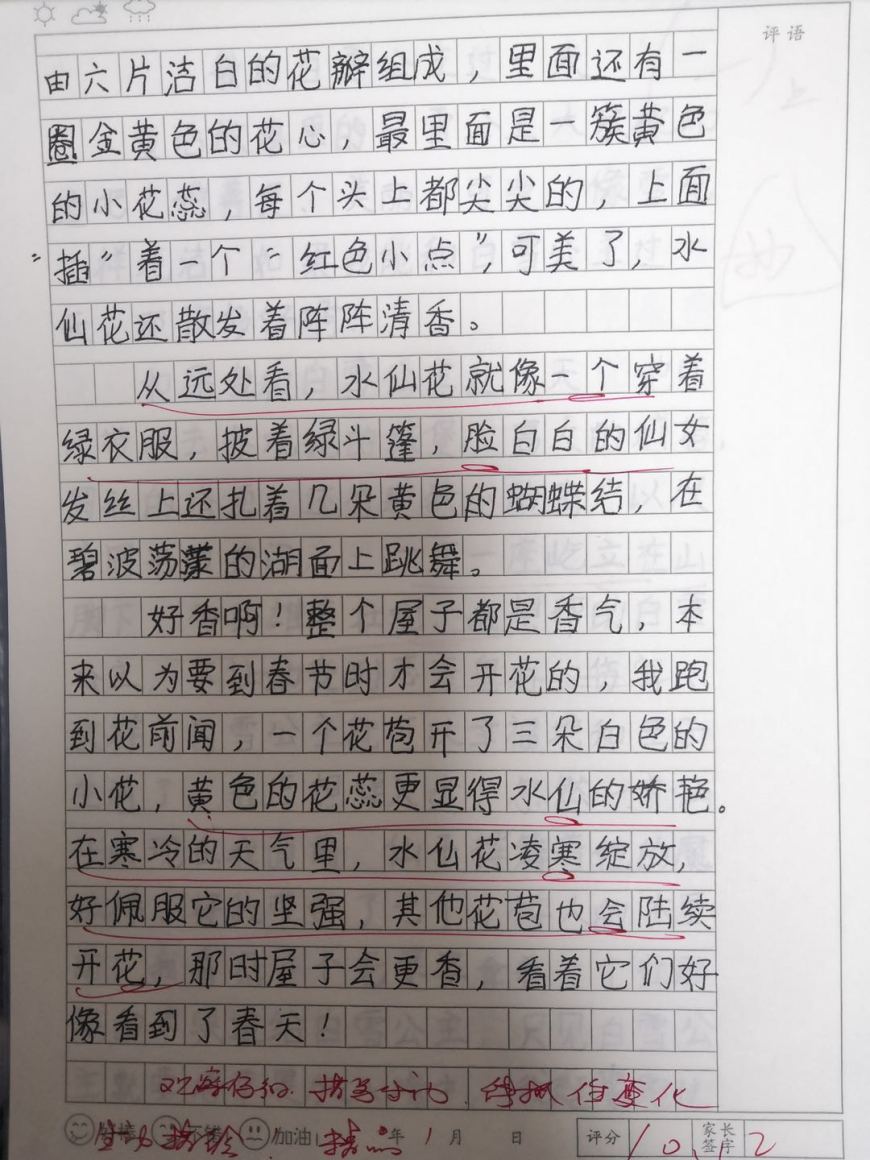 评语
由六片洁白的花瓣组成，里面还有一
圈金黄色的花心，最里面是一簇黄色
的小花蕊，每个头上都尖尖的，上面
“插”着一个“红色小点”，可美了，水
仙花还散发着阵阵清香。
从远处看，水仙花就像一个穿着
绿衣服，披着绿斗篷，脸白白的仙女
发丝上还扎着几朵黄色的蝴蝶结，在
碧波荡漾的湖面上跳舞。
好香啊！整个屋子都是香气，本
来以为要到春节时才会开花的，我跑
到花前闻，一个花苞开了三朵白色的
小花，黄色的花蕊更显得水仙的娇艳。
在寒冷的天气里，水仙花凌寒绽放，
好佩服它的坚强，其他花苞也会陆续
开花，那时屋子会更香，看着它们好
像看到了春天！
观察仔细 描写生动
变化
加油 年 1 月 日 评分 10.12 家长签字